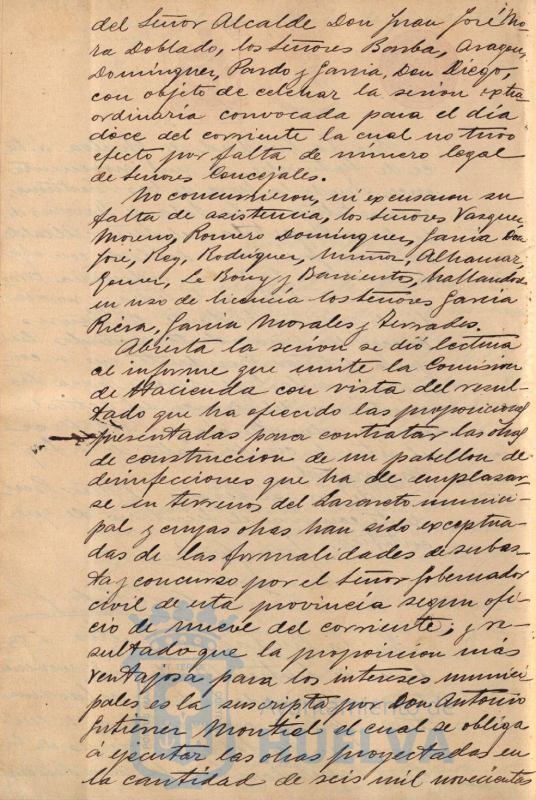 del Señor Alcalde Don Juan José Mo-
ra Doblado, los Señores Barba, Aragon,
Dominguez, Pardo y Garcia, Don Diego,
con objeto de celebrar la sesion extra
ordinaria convocada para el día
doce del corriente la cual no tuvo
efecto por falta de número legal
de Señores Concejales.
No concurrieron, ni excusaron su
falta de asistencia, los Señores Vazquez
Moreno, Romero Dominguez, Garcia Don
José, Rey, Rodriguez, Muñoz, Alhamar,
Le Bony y Barriento, hallandose
en uso de licencia los Señores Garcia
Riera, Garcia Morales y Terrades.
Abierta la sesion se dió lectura
al informe que emite la Comision
de Hacienda con vista del resul-
tado que ha ofrecido las proposiciones
presentadas para contratar las obras
de construccion de un pabellon de
desinfecciones que ha de emplazar
se en terrenos del Lazareto munici-
pal y cuyas obras han sido exceptua-
das de las formalidades de subas-
ta y concurso por el Señor Gobernador
civil de esta provincia segun ofi-
cio de nueve del corriente; y re-
sultado que la proposicion más
ventajosa para los intereses munici
pales es la suscripta por Don Antonio
Gutierrez Montiel el cual se obliga
á ejecutar las obras proyectadas en
la cantidad de seis mil novecientas
HUELVA